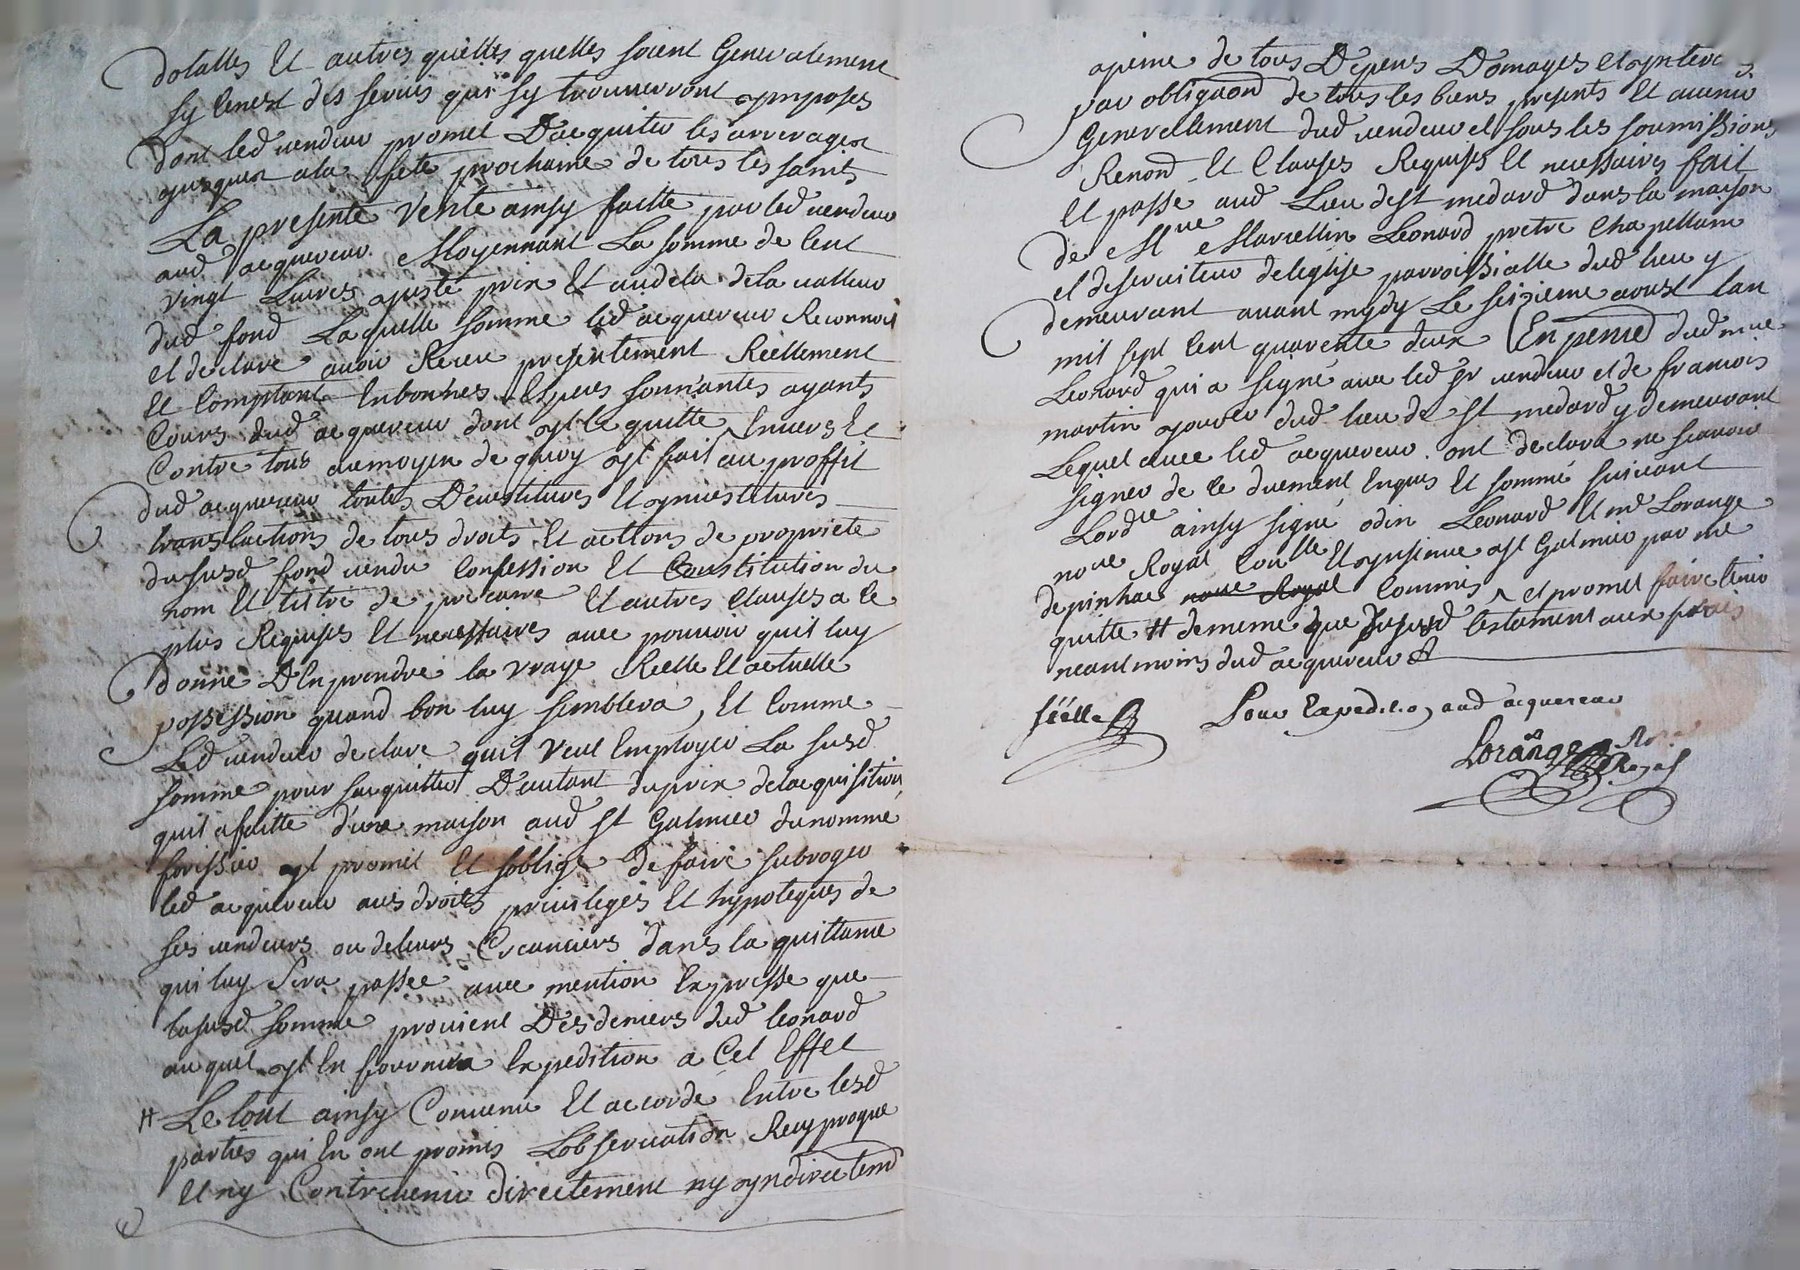 dotalles Et autres quelles quelles soient Generalement
sy lenest des servis qui sy trouverront ymposes
dont led vendeur promet D'acquiter les arrerages
jusques ala fete prochaine de tous les saints
La presente vente ainsy faitte par led vendeur
aud acquereur Moyennant La somme de Cent
vingt Livres ajuste prix Et audela dela valleur
dud fond Laquelle somme led acquereur Reconnoit
et declare avoir Receu presentement Réellement
Et Comptant En bonnes Especes sonnantes ayants
Cours dud acquereur dont yl le quitte ^ Envers Et
Contre tous aumoyen de quoy yl fait au proffit
dud acquereur toutes Devestitures Et ynvestitures
translactions de tous droits Et actions de propriete
du susd fond vendu Confession Et Constitution du
nom Et tiltre de precaire Et autres Clauses a ce
plus Requises Et necessaires avec pouvoir quil luy
donne D'En prendre la vraye Réelle Et actuelle
possession quand bon luy semblera, Et Comme
Led vendeur declare quil veut Employer La susd
somme pour sacquitter D'autant du prix delacquisition
quil a faitte d'une maison aud St Galmier dunommé
forissier yl promet Et soblige de faire subroger
led acquereur aus droits privileges Et hypoteques de
ses vendeurs ou deleurs Creanciers dans la quittance
qui luy sera passée avec mention Expresse que
la susd somme provient Des deniers dud leonard
auquel yl En fournira Expedition a Cet Effet
# Le tout ainsy Convenu Et accordé Entre lesd
parties qui En ont promis Lobservation Recyproque
Et ny Contrevenir directement ny yndirectemt
apeine de tous Depens Domages et ynterets
par obligaon de tous les biens presents Et avenir
Generellement dud vendeur et sous les soumissions
Renond Et Clauses Requises Et necessaires fait
Et passé aud Lieu de St medard dans la maison
de Mre Marcellin Leonard pretre Chapellain
et deserviteur de leglise parroissialle dud lieu y
demeurant avant mydy Le seizieme aoust lan
mil sept Cent quarente deux En pnce dud mre
Leonard qui a signé avec led sr vendeur et de francois
martin dud lieu de St medard y demeurant
Lequel avec led acquereur ont declaré ne scavoir
signer de ce duement Enquis Et sommé suivant
Lordce ainsy signé odin Leonard Et md Lorange
nore Royal Conlle Et ynsinué a St Galmier par me
depinhac nore Royal Commis ^ et promet faire tenir
quitte # de meme que du susd testament aux frais
neantmoins dud acquereur
scéllé Pour Expedition aud acquereur
Lorange Nore
Royal